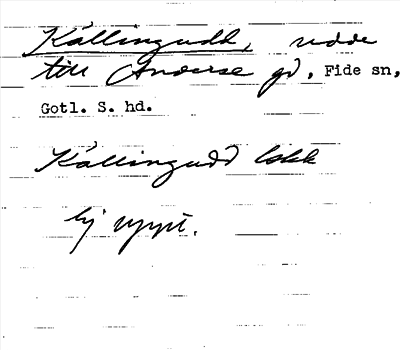 Källingudd, udde
till Anderse gd, Fide sn,
Gotl. S. hd.
Källingudd lokk
ej uppt.